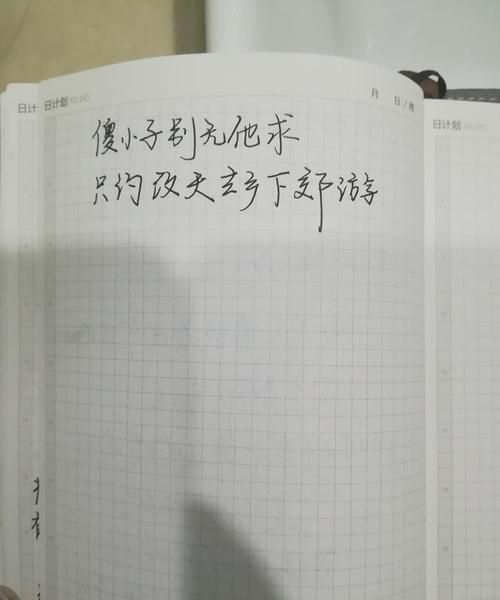 日计 日计划 TO DO 月 日/周
日计划 TO DO
傻小子别无他求
只约改天去乡下郊游